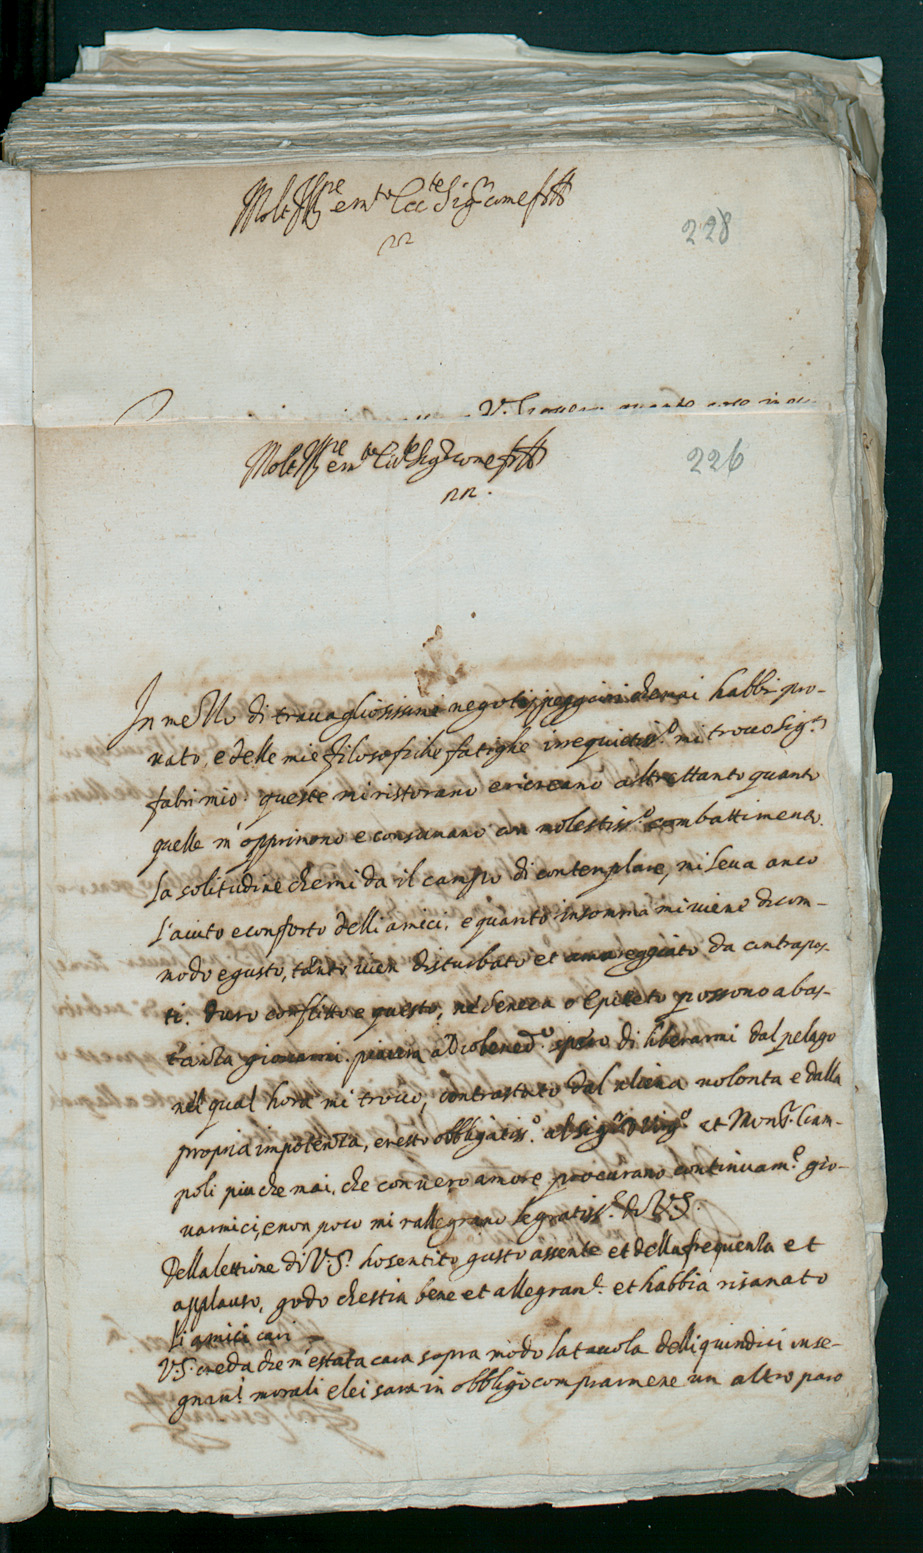 Molt Ill.re e m.to Ecc.te Sig.r come fr̃ll
228
V.S.
Molt Ill.re e m.to Ecc.te Sig.r come fr̃ll
226
In mezzo di travagliosissimi negotij peggiori che mai habbi pro-
vato, e delle mie filosofiche fatighe irrequietiss.o mi trovo Sig.r
fabri mio. queste mi ristorano e ricreano altrettanto quanto
quelle m'opprimono e consumano con molestiss.o combattimento.
La solitudine che mi da il campo di contemplare, mi leva anco
l'aiuto e conforto delli amici, e quanto insomma mi viene di com-
modo e gusto, tanto vien disturbato et amareggiato da contrapos-
ti. duro conflitto e questo, ne Seneca o Epiteto possono a bas-
tanza giovarmi. piacera a Dio bened.o spero di liberarmi dal pelago
nel qual hora mi trovo, contrastato dal aliena volonta e dalla
propria impotenza, e resto obbligatiss.o al Sig.r et Mons.r Ciam-
poli piu che mai, che con vero amore procurano continuam.e gio-
varmici, e non poco mi rallegrano le gratiss.e di V.S.
Della lettione di V.S. ho sentito gusto assente et della frequenza et
applauso, godo che stia bene et allegram.e et habbia risanato
li amici cari
V.S. creda che m'e stata cara sopra modo la tavola delli quindici inse-
gnam.i morali e lei sara in obbligo comprarmene un altro paro